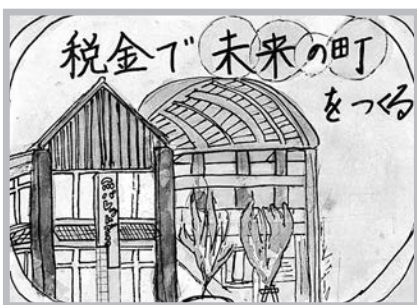 税金で未来の町
をつくる